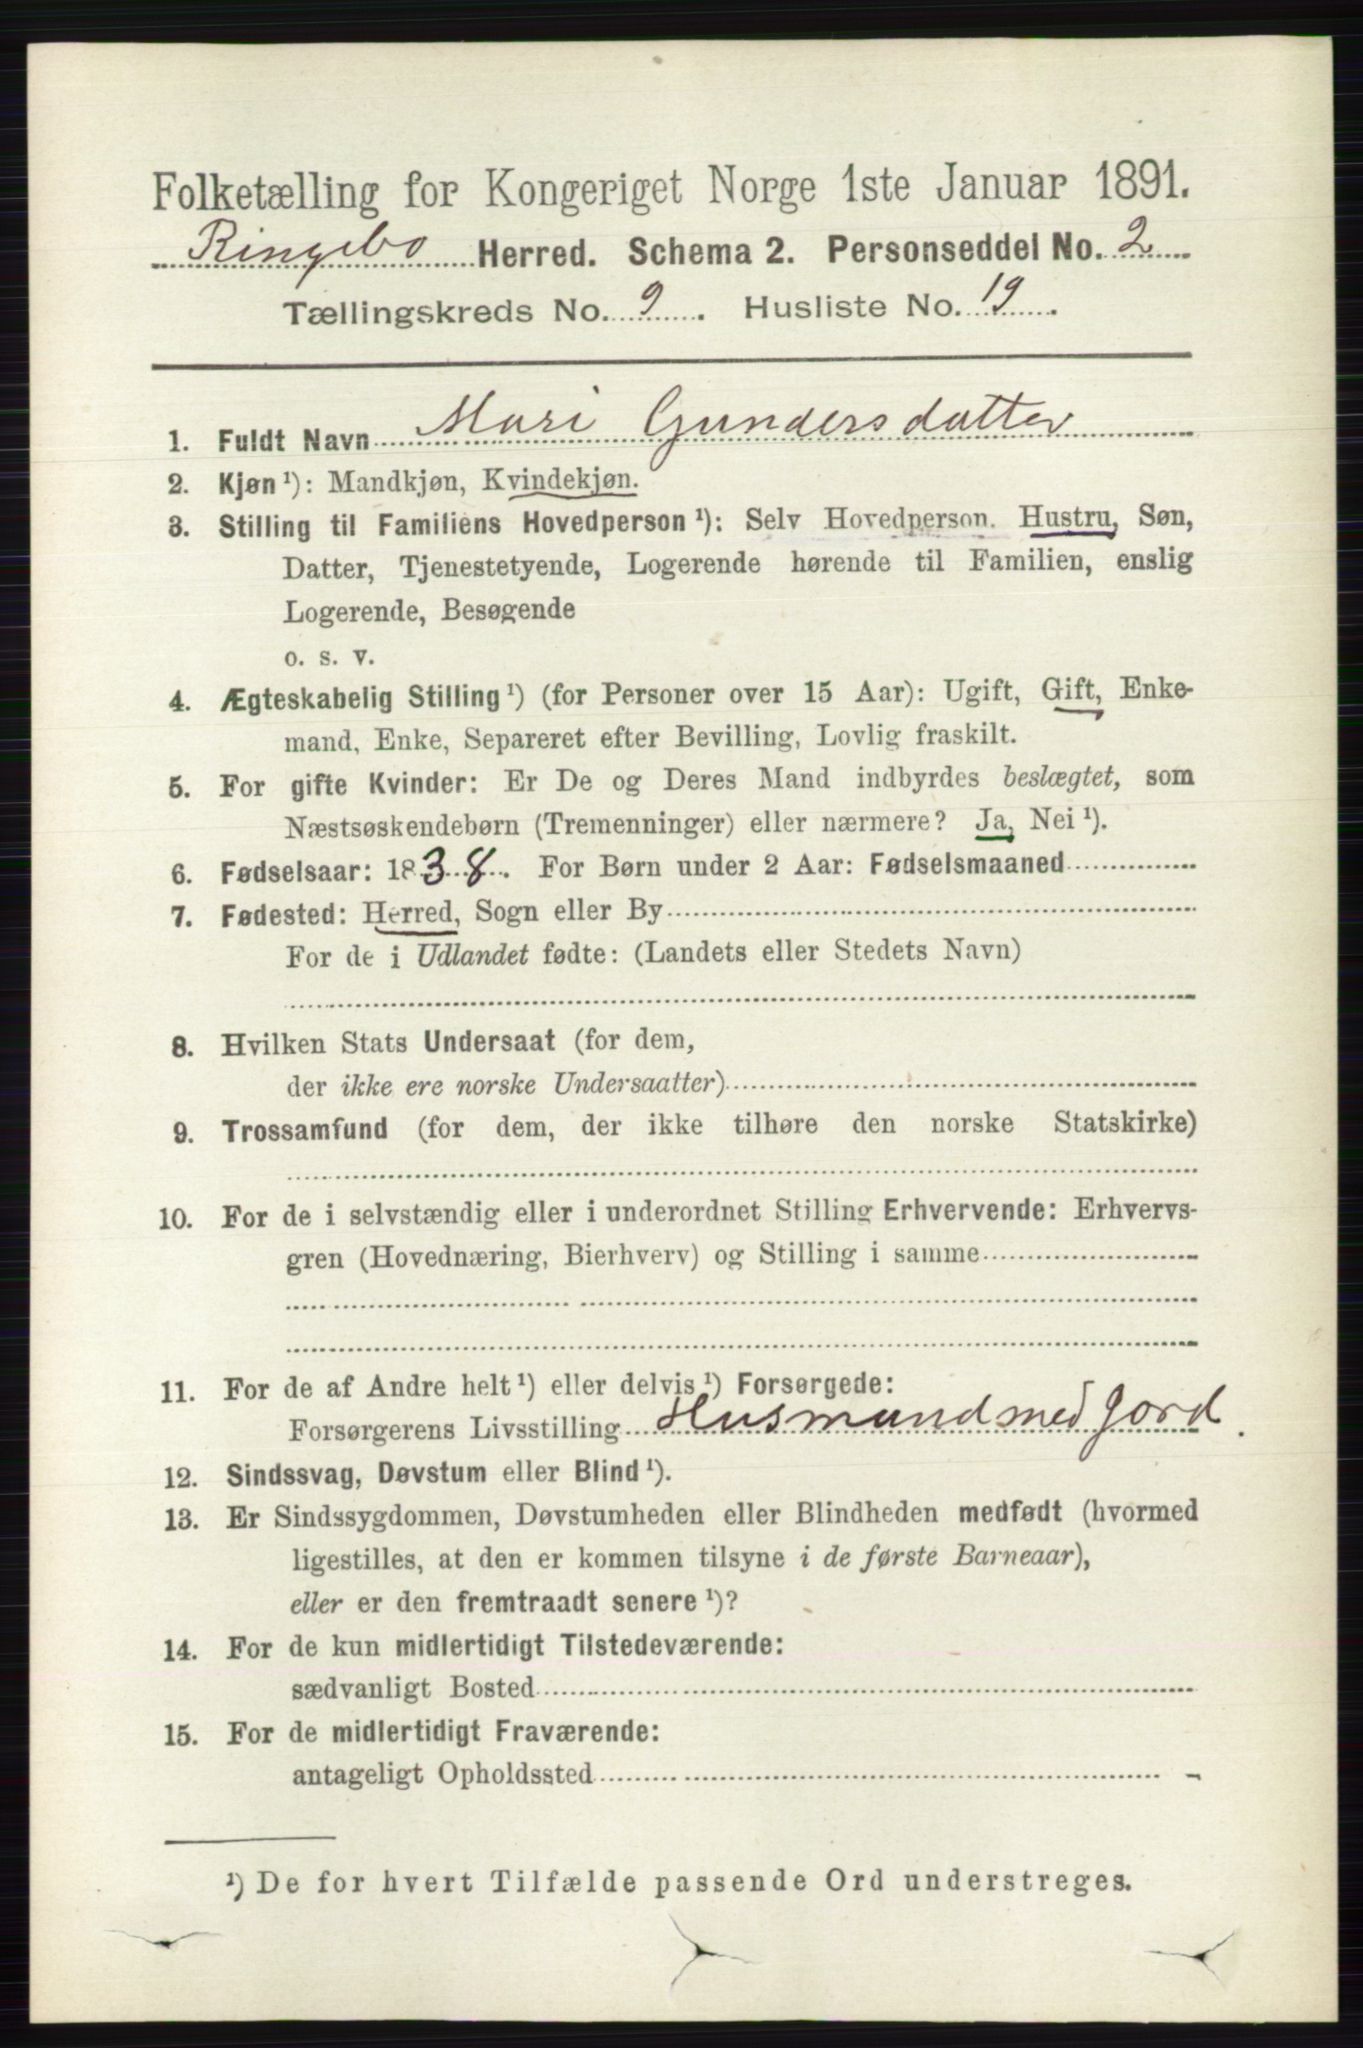 Folketælling for Kongeriget Norge 1ste Januar 1891.
Ringebo Herred. Schema 2. Personseddel No. 2
Tællingskreds No. 9. Husliste No. 19.
1. Fuldt Navn Mari Gundersdatter
2. Kjøn ¹): Mandkjøn, Kvindekjøn.
3. Stilling til Familiens Hovedperson ¹): Selv Hovedperson. Hustru, Søn,
Datter, Tjenestetyende, Logerende hørende til Familien, enslig
Logerende, Besøgende
o. s. v.
4. Ægteskabelig Stilling ¹) (for Personer over 15 Aar): Ugift, Gift, Enke-
mand, Enke, Separeret efter Bevilling, Lovlig fraskilt.
5. For gifte Kvinder: Er De og Deres Mand indbyrdes beslægtet, som
Næstsøskendebørn (Tremenninger) eller nærmere? Ja, Nei ¹).
6. Fødselsaar: 1838. For Børn under 2 Aar: Fødselsmaaned
7. Fødested: Herred, Sogn eller By
For de i Udlandet fødte: (Landets eller Stedets Navn)
8. Hvilken Stats Undersaat (for dem,
der ikke ere norske Undersaatter)
9. Trossamfund (for dem, der ikke tilhøre den norske Statskirke)
10. For de i selvstændig eller i underordnet Stilling Erhvervende: Erhvervs-
gren (Hovednæring, Bierhverv) og Stilling i samme
11. For de af Andre helt ¹) eller delvis ¹) Forsørgede:
Forsørgerens Livsstilling Husmand med Jord.
12. Sindssvag, Døvstum eller Blind ¹).
13. Er Sindssygdommen, Døvstumheden eller Blindheden medfødt (hvormed
ligestilles, at den er kommen tilsyne i de første Barneaar),
eller er den fremtraadt senere ¹)?
14. For de kun midlertidigt Tilstedeværende:
sædvanligt Bosted
15. For de midlertidigt Fraværende:
antageligt Opholdssted
¹) De for hvert Tilfælde passende Ord understreges.